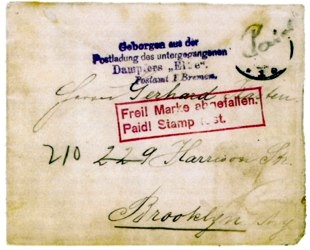 Paid
Geborgen aus der
Postladung des untergegangenen
Dampfers „Elbe".
Postamt 1 Bremen.
Herrn Gerhard
Frei! Marke abgefallen.
Paid! Stamp lost.
210 229 Harrison St.
Brooklyn